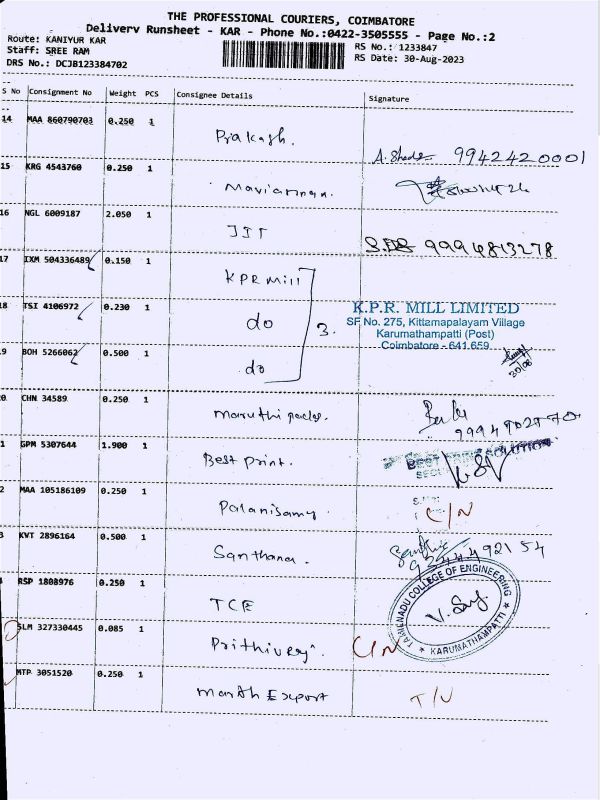 THE PROFESSIONAL COURIERS, COIMBATORE
Delivery Runsheet - KAR - Phone No.:0422-3505555 - Page No.:2
Route: KANIYUR KAR
RS No.: 1233847
Staff: SREE RAM
RS Date: 30-Aug-2023
DRS No.: DCJB123384702
S No Consignment No Weight PCS Consignee Details Signature
14 MAA 860790703 0.250 1
Prakash.
9942420001
15 KRG 4543760 0.250 1
16 NGL 6009187 2.050 1
JIT
9994813278
17 IXM 504336489 0.150 1
KPR Mill
18 TSI 4106972 0.230 1
do
3.
K.P.R. MILL LIMITED
SF No. 275, Kittampalayam Village
Karumathampatti (Post)
Coimbatore - 641 659
9 BOH 5266062 0.500 1
do
30/08
0 CHN 34589 0.250 1
maruthi packs.
1 GPM 5307644 1.900 1
Best print.
2 MAA 105186109 0.250 1
Palanisamy
C/N
3 KVT 2896164 0.500 1
Santhana.
RSP 1808976 0.250 1
TCE
TAMILNADU COLLEGE OF ENGINEERING
KARUMATHAMPATTI
SLM 327330445 0.085 1
C/N
MTP 3051520 0.250 1
Export